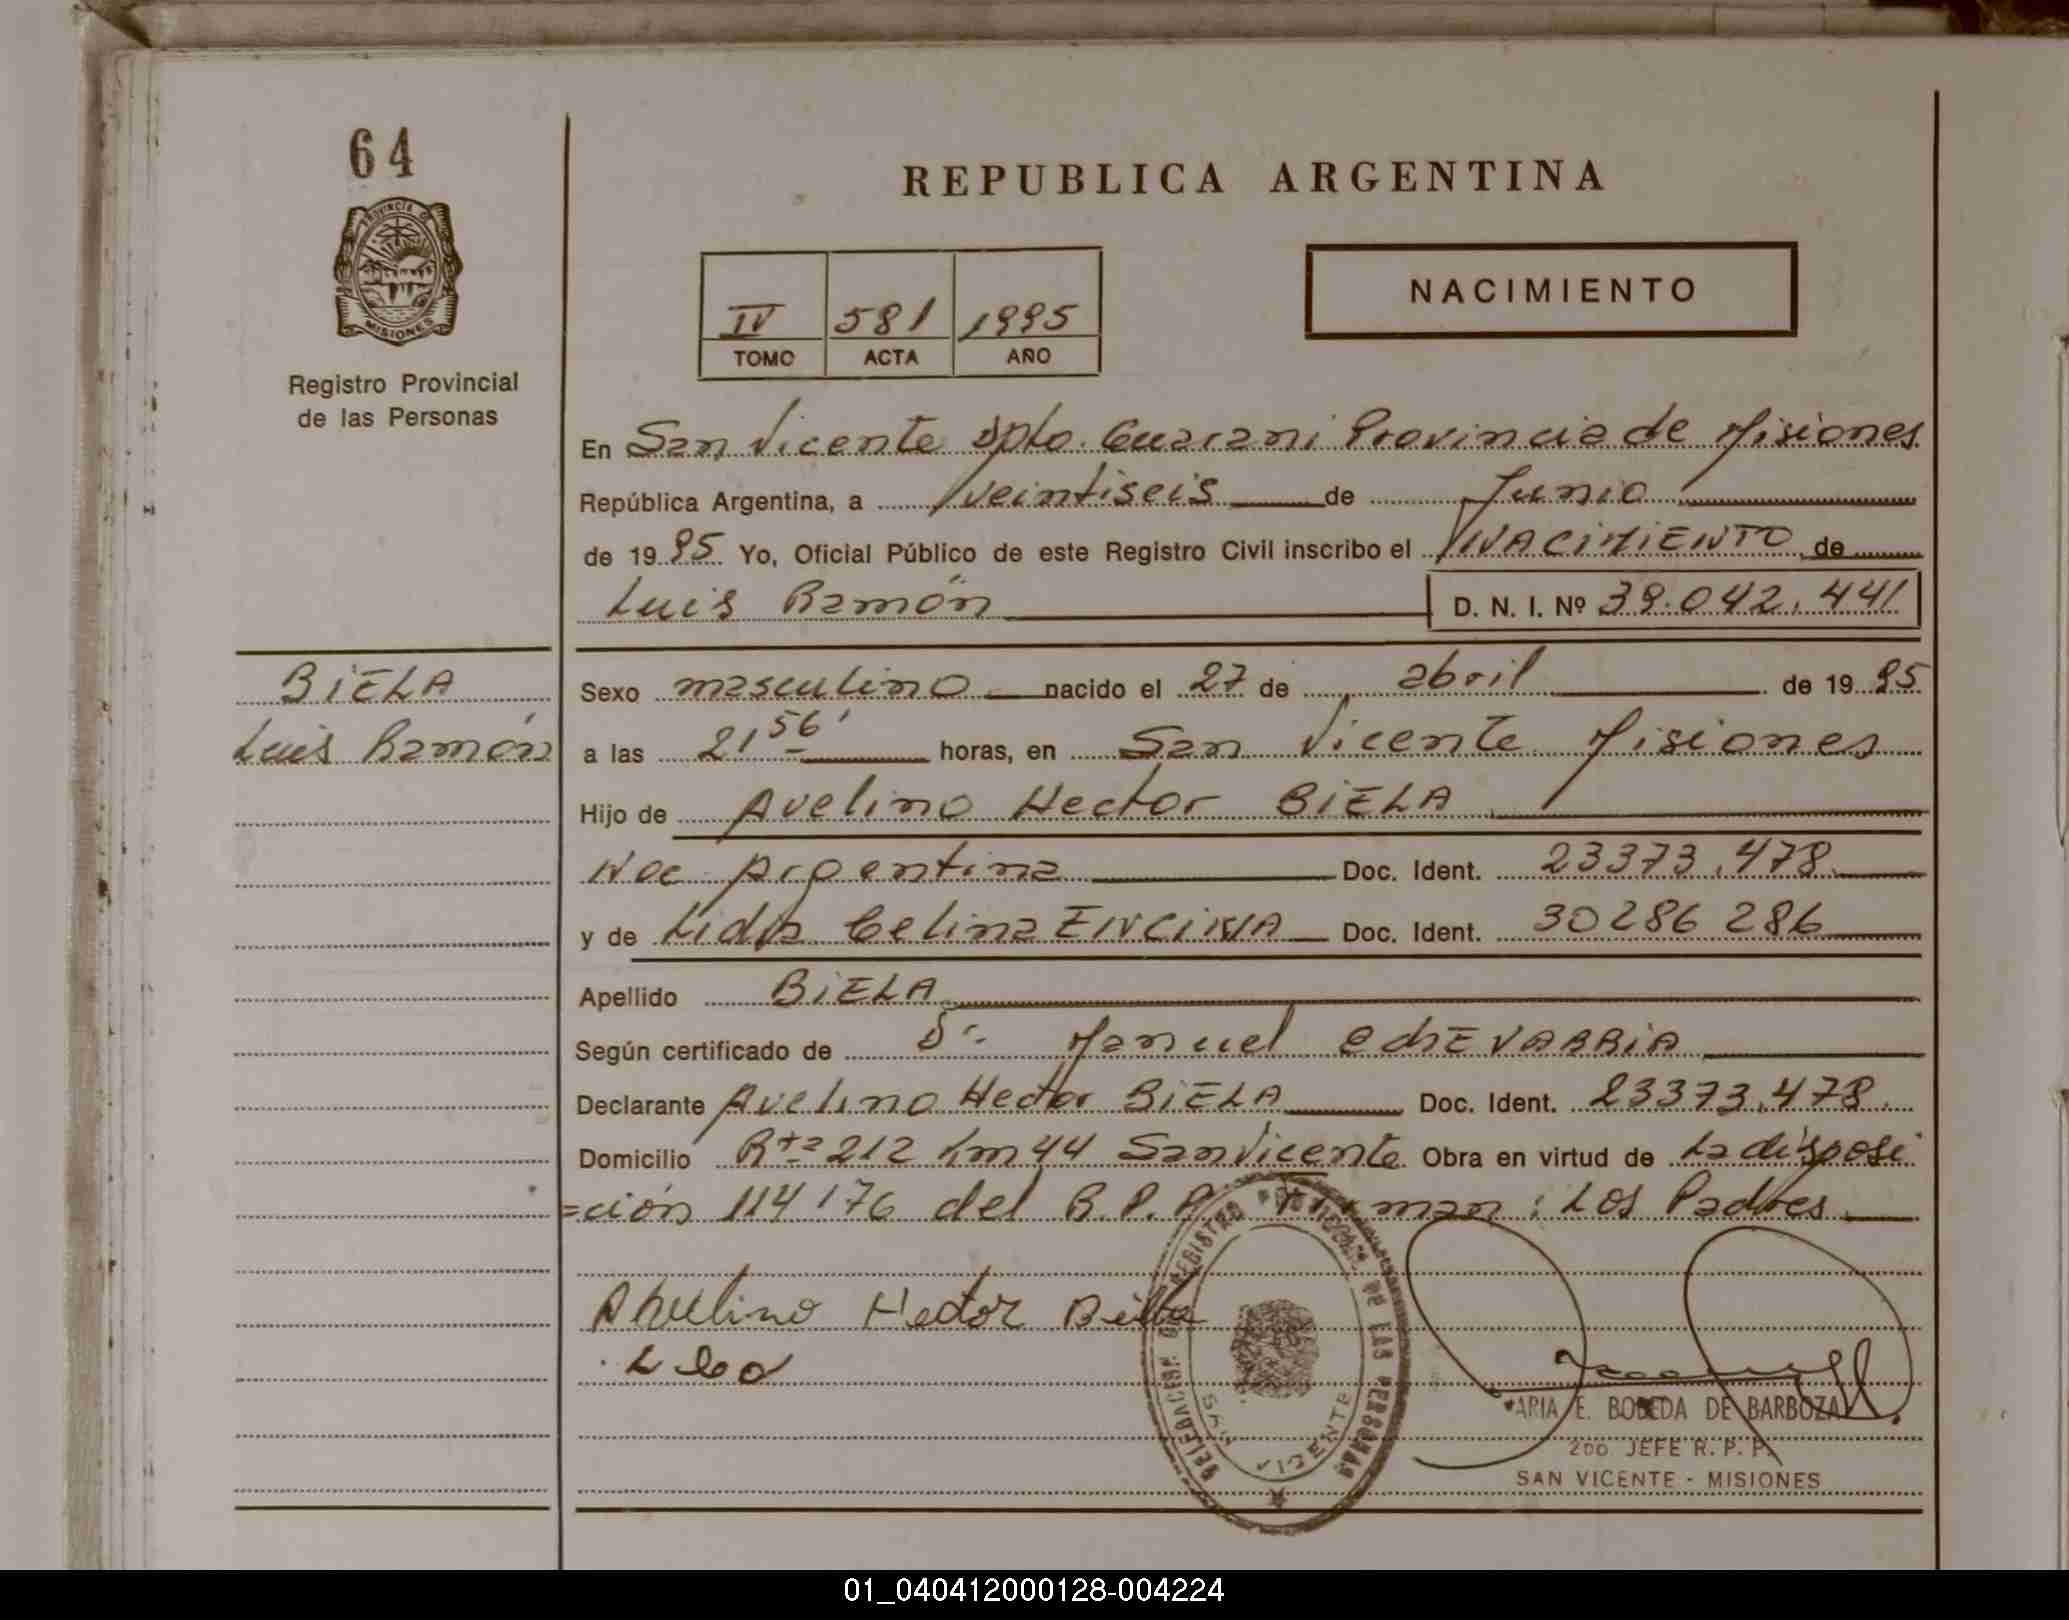 64
PROVINCIA DE
MISIONES
Registro Provincial
de las Personas
REPUBLICA ARGENTINA
IV 581 1995
TOMO ACTA AÑO
NACIMIENTO
En San Vicente Dpto. Guarani Provincia de Misiones
República Argentina, a veintiseis de Junio
de 1995 Yo, Oficial Público de este Registro Civil inscribo el NACIMIENTO de
Luis Ramón D. N. I. Nº 39.042.441
BIELA
Luis Ramón
Sexo masculino nacido el 27 de abril de 1995
a las 21 56' horas, en San Vicente Misiones
Hijo de Avelino Hector BIELA
Nac Argentina Doc. Ident. 23373.478
y de Lidia Celina ENCINA Doc. Ident. 30286 286
Apellido BIELA
Según certificado de Dr. Manuel EchEVARRIA
Declarante Avelino Hector BIELA Doc. Ident. 23373.478.
Domicilio Rta 212 Km 44 San Vicente Obra en virtud de La disposi
=ción 114/76 del R.P.P. man: Los Padres
Avelino Hector
REGISTRO PROVINCIAL DE LAS PERSONAS
SAN VICENTE
ARIA E. BOBEDA DE BARBOZA
2do JEFE R. P. P.
SAN VICENTE - MISIONES
01_040412000128-004224